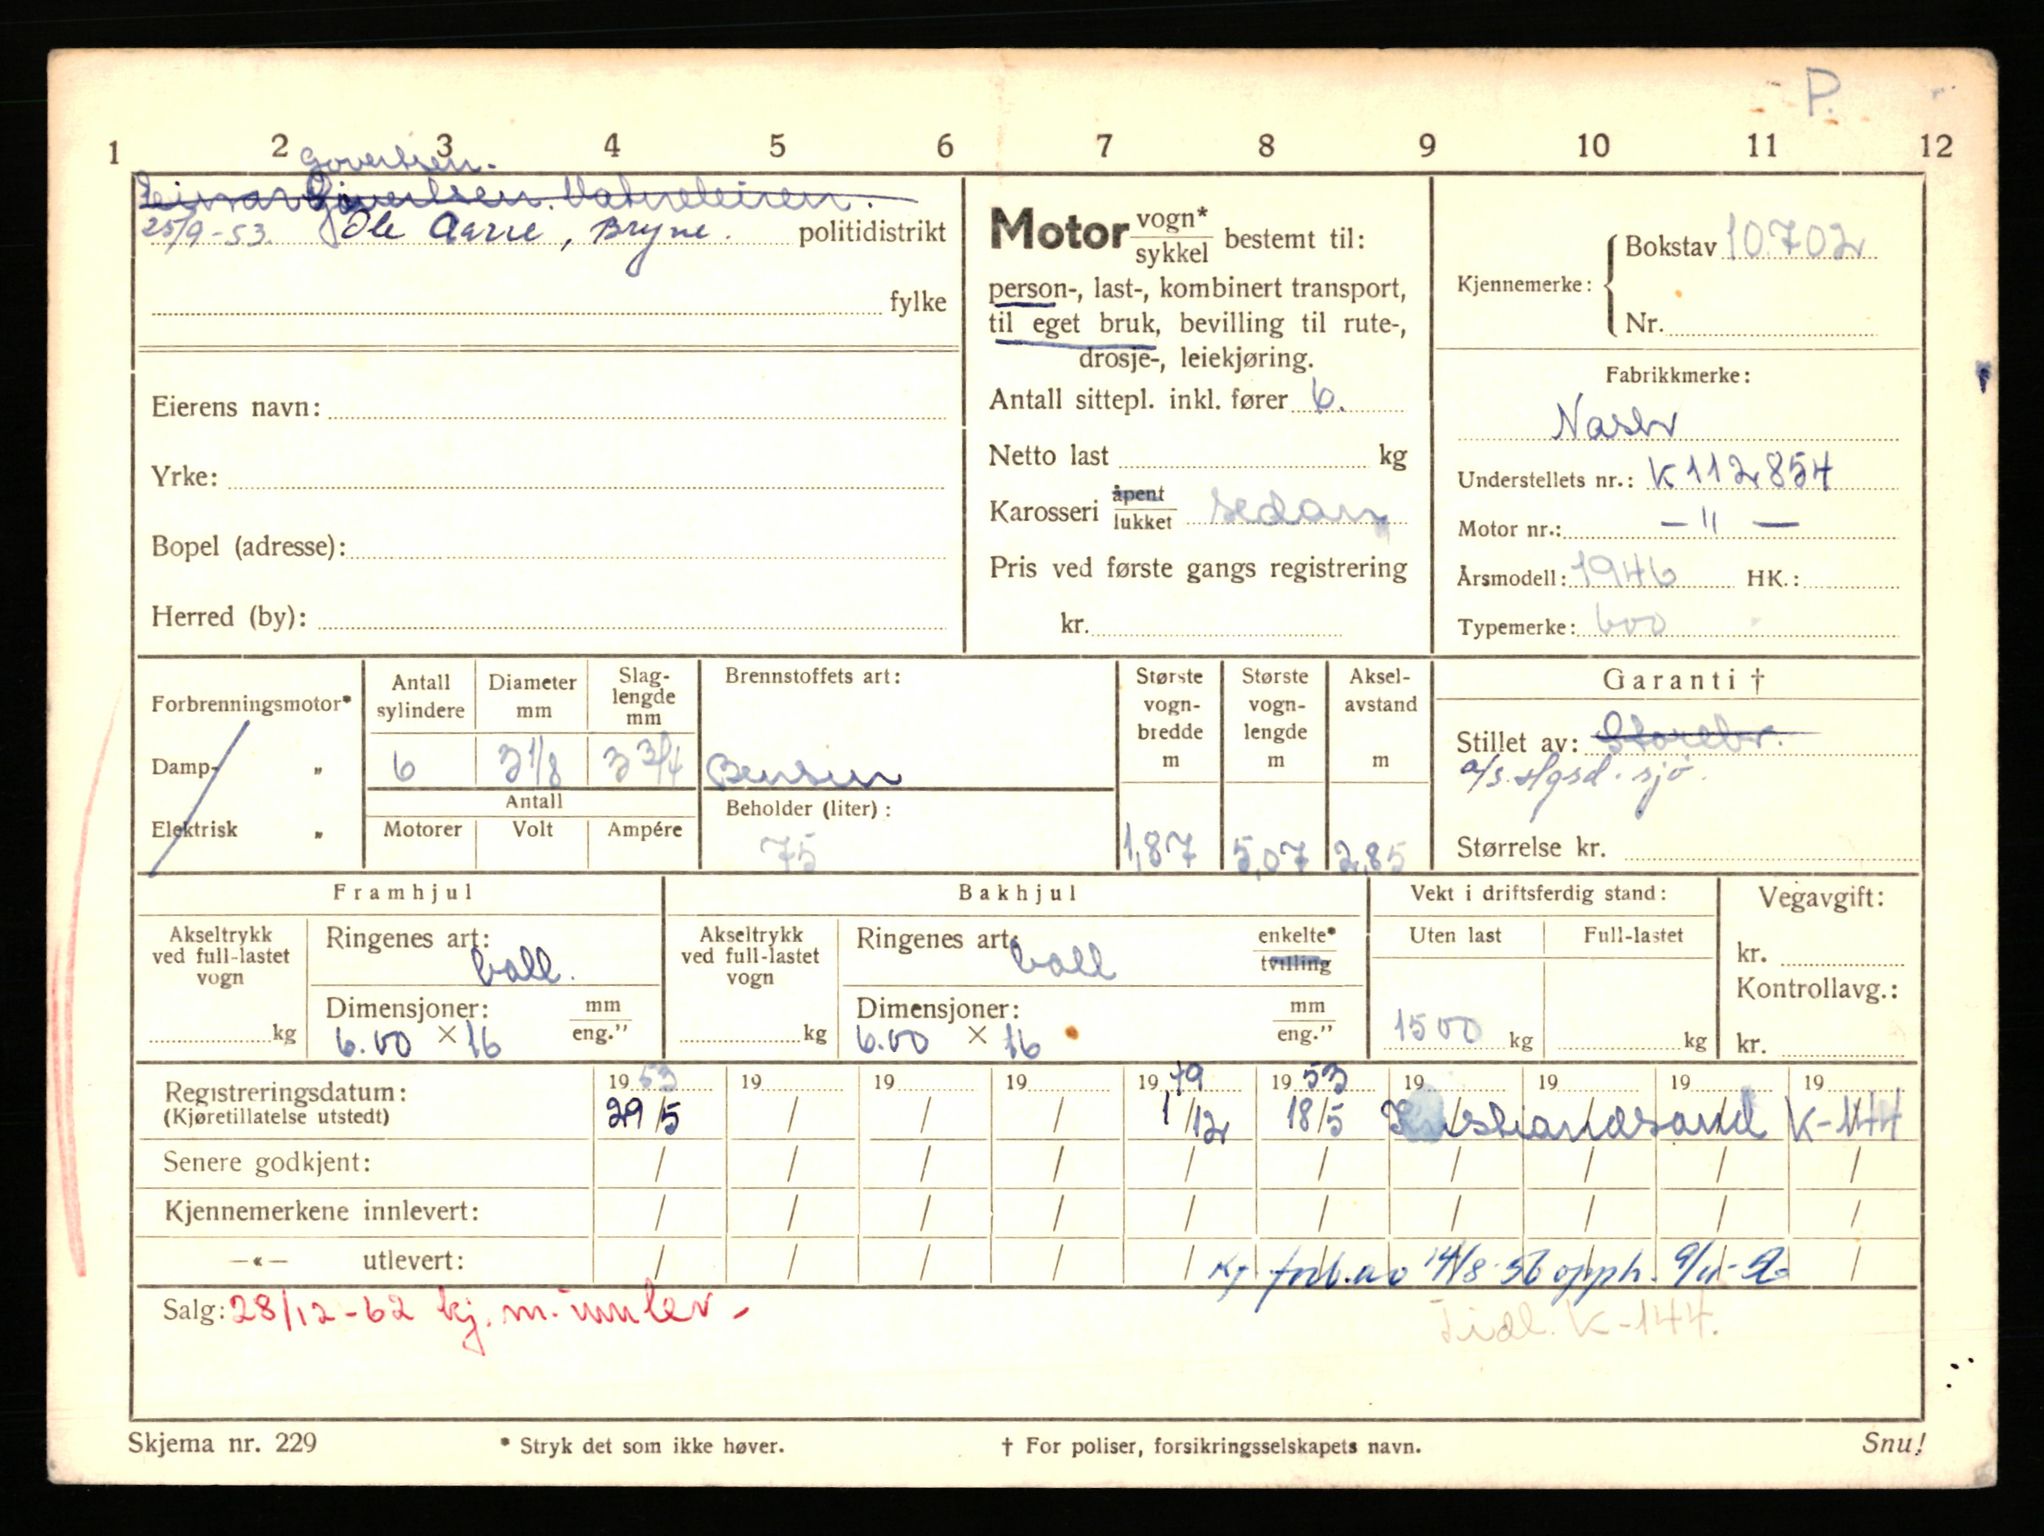 P.
1 2 3 4 5 6 7 8 9 10 11 12
Govertsen.
Einar Govertsen. Vatneleiren.
25/9-53. Ole Aarre, Bryne. politidistrikt
fylke
Eierens navn:
Yrke:
Bopel (adresse):
Herred (by):
Motor vogn*
sykkel bestemt til:
person-, last-, kombinert transport,
til eget bruk, bevilling til rute-,
drosje-, leiekjøring.
Antall sittepl. inkl. fører 6.
Netto last kg
Karosseri åpent
lukket sedan
Pris ved første gangs registrering
kr.
Kjennemerke: Bokstav 10702
Nr.
Fabrikkmerke:
Nash
Understellets nr.: K112854
Motor nr.: — " —
Årsmodell: 1946 HK.:
Typemerke: 600
Forbrenningsmotor*
Damp- „
Elektrisk „
Antall sylindere
6
Diameter mm
3 1/8
Slag-lengde mm
3 3/4
Antall
Motorer Volt Ampére
Brennstoffets art:
Bensin
Beholder (liter):
75
Største vogn-bredde m
1,87
Største vogn-lengde m
5,07
Aksel-avstand m
2,85
Garanti †
Stillet av: Storebr.
a/s. Hgsd. sjø.
Størrelse kr.
Framhjul
Akseltrykk
ved full-lastet
vogn
kg
Ringenes art: ball.
Dimensjoner: mm
6.00 × 16 eng.”
Bakhjul
Akseltrykk
ved full-lastet
vogn
kg
Ringenes art: ball enkelte*
tvilling
Dimensjoner: mm
6.00 × 16 eng.”
Vekt i driftsferdig stand:
Uten last Full-lastet
1500 kg kg
Vegavgift:
kr.
Kontrollavg.:
kr.
Registreringsdatum: 19 53 19 19 19 19 49 19 53 19 19 19 19
(Kjøretillatelse utstedt) 29/5 / / / 1/12 18/5 Kristiandsand K-144
Senere godkjent: / / / / / / / / / /
Kjennemerkene innlevert: / / / / / / / / / /
—«— utlevert: / / / / / Kj. forb. av 14/8-56 opph. 9/11-56 /
Salg: 28/12-62 kj.m. innlev-
Tidl. K-144.
Skjema nr. 229 * Stryk det som ikke høver. † For poliser, forsikringsselskapets navn. Snu!